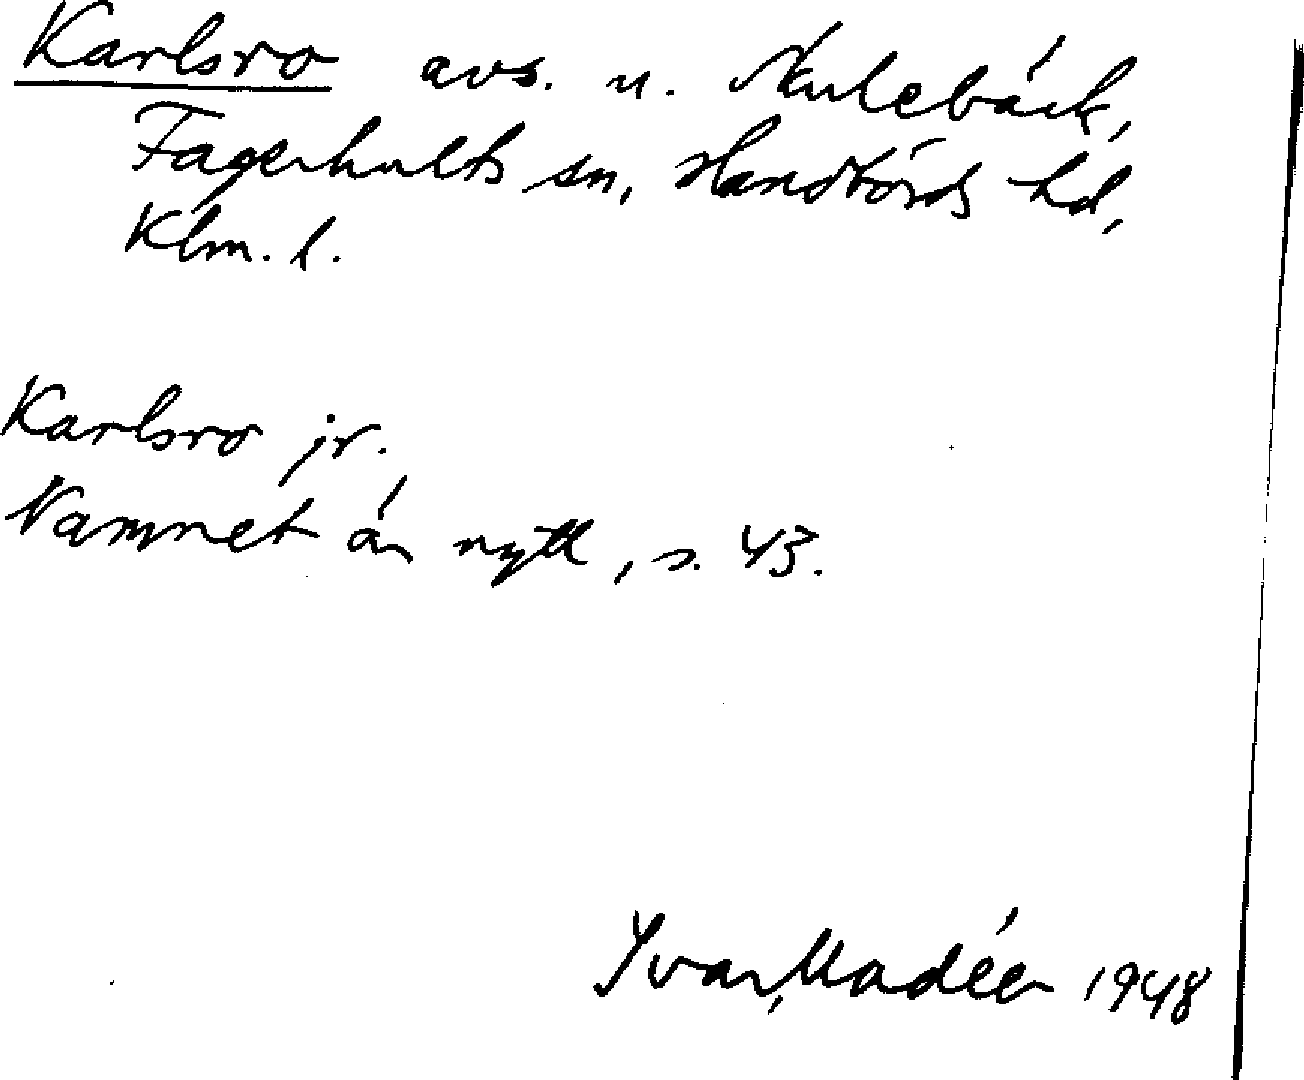 Karlsro avs. u. Mulebäck,
Fagerhults sn, Handbörds hd,
Klm. l.
Karlsro jr.
Namnet är nytt, s. 43.
Yvar Modéer 1948